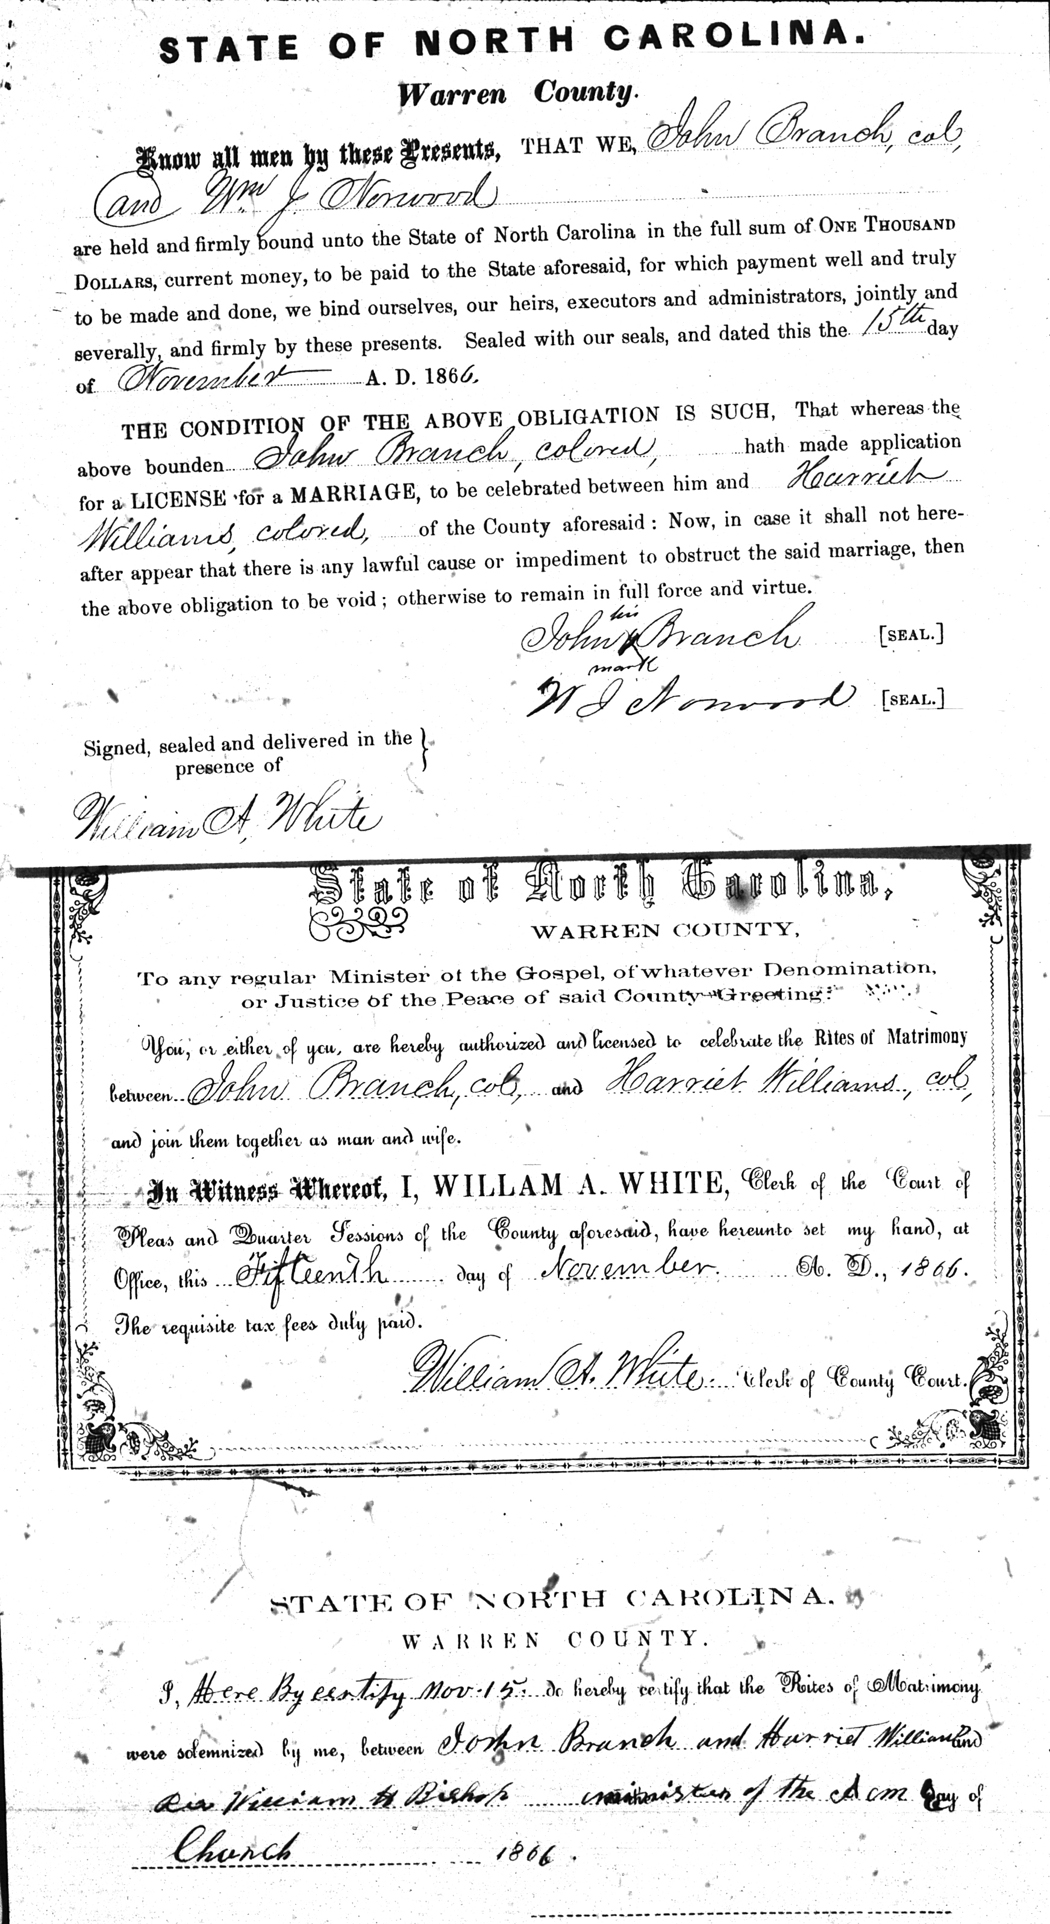 STATE OF NORTH CAROLINA.
Warren County.
Know all men by these Presents, THAT WE, John Branch, col,
and Wm J. Norwood
are held and firmly bound unto the State of North Carolina in the full sum of ONE THOUSAND
DOLLARS, current money, to be paid to the State aforesaid, for which payment well and truly
to be made and done, we bind ourselves, our heirs, executors and administrators, jointly and
severally, and firmly by these presents. Sealed with our seals, and dated this the 15th day
of November A. D. 1866.
THE CONDITION OF THE ABOVE OBLIGATION IS SUCH, That whereas the
above bounden John Branch, colored, hath made application
for a LICENSE for a MARRIAGE, to be celebrated between him and Harriet
Williams, colored, of the County aforesaid: Now, in case it shall not here-
after appear that there is any lawful cause or impediment to obstruct the said marriage, then
the above obligation to be void; otherwise to remain in full force and virtue.
his
John X Branch [SEAL.]
mark
W J Norwood [SEAL.]
Signed, sealed and delivered in the
presence of
William A. White
State of North Carolina,
WARREN COUNTY,
To any regular Minister of the Gospel, of whatever Denomination,
or Justice of the Peace of said County—Greeting:
You, or either of you, are hereby authorized and licensed to celebrate the Rites of Matrimony
between John Branch, col, and Harriet Williams, col,
and join them together as man and wife.
In Witness Whereof, I, WILLAM A. WHITE, Clerk of the Court of
Pleas and Quarter Sessions of the County aforesaid, have hereunto set my hand, at
Office, this Fifteenth day of November. A. D., 1866.
The requisite tax fees duly paid.
William A. White. Clerk of County Court.
STATE OF NORTH CAROLINA.
WARREN COUNTY.
I, Here By certify Nov. 15. do hereby certify that the Rites of Matrimony
were solemnized by me, between John Branch and Harriet William and
William H Bishop minister of the A cm Day of
Church 1866.